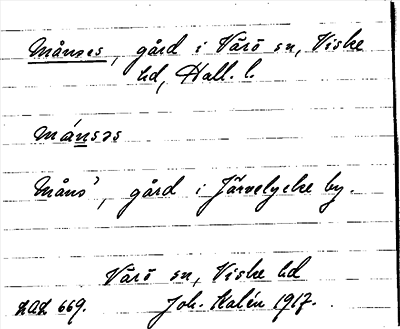 Månses, gård i Värö sn, Viske
hd, Hall. l.
månsəs
Måns', gård i Järvelycke by.
Värö sn, Viske hd
DAL 669. Joh. Kalén 1917.